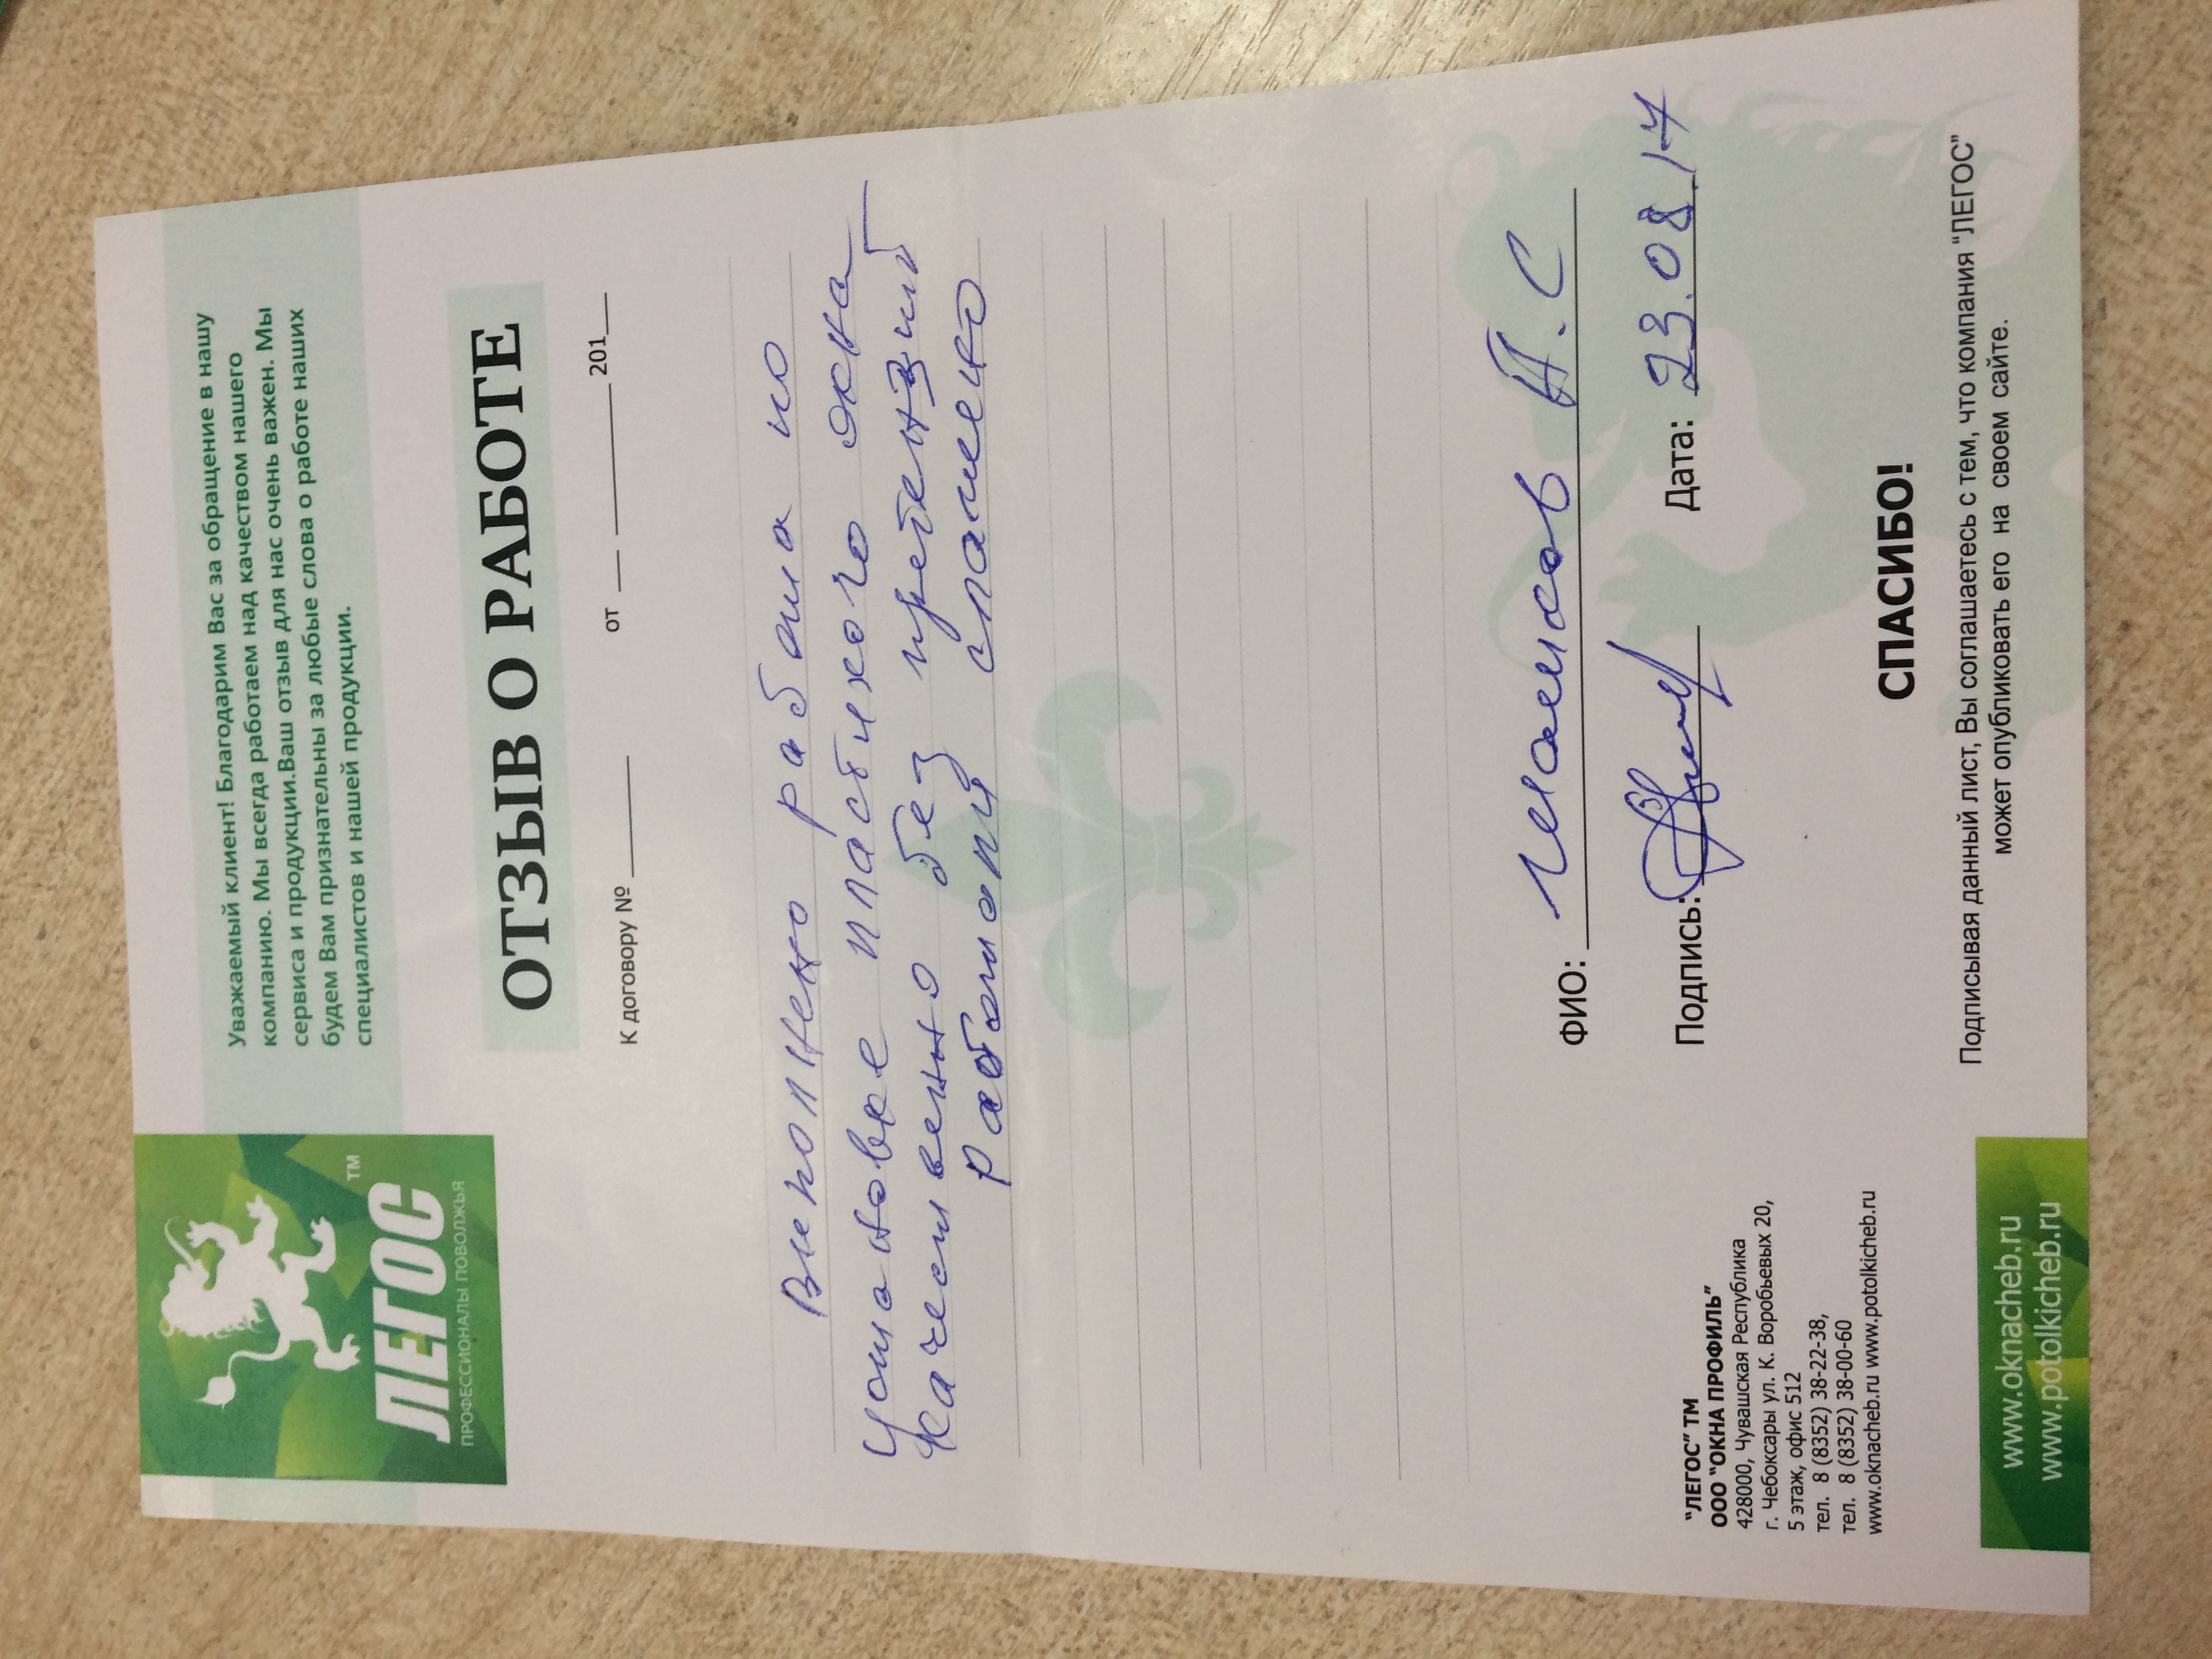 ЛЕГОС
TM
ПРОФЕССИОНАЛЫ ПОВОЛЖЬЯ
Уважаемый клиент! Благодарим Вас за обращение в нашу
компанию. Мы всегда работаем над качеством нашего
сервиса и продукции.Ваш отзыв для нас очень важен. Мы
будем Вам признательны за любые слова о работе наших
специалистов и нашей продукции.
ОТЗЫВ О РАБОТЕ
К договору № ________ от ___ __________ 201___
Выполнено работа по
установке пластикого окна
качественно без претензий
Работали слажено
ФИО: А.С
Подпись: Дата: 23.08.17
"ЛЕГОС" ТМ
ООО "ОКНА ПРОФИЛЬ"
428000, Чувашская Республика
г. Чебоксары ул. К. Воробьевых 20,
5 этаж, офис 512
тел. 8 (8352) 38-22-38,
тел. 8 (8352) 38-00-60
www.oknacheb.ru www.potolkicheb.ru
СПАСИБО!
Подписывая данный лист, Вы соглашаетесь с тем, что компания "ЛЕГОС"
может опубликовать его на своем сайте.
www.oknacheb.ru
www.potolkicheb.ru